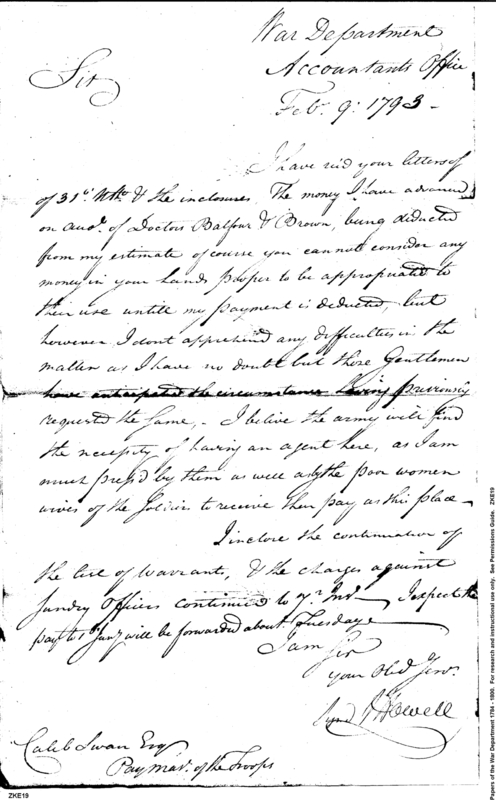 War Department
Accountants Office
Feby. 9: 1793 -
Sir
I have rec'd your letters of
of 31st Ulto. & the inclosures. The money I have advanced
on accot. of Doctors Balfour & Brown, being deducted
from my estimate of course you cannot consider any
money in your hands proper to be appropriated to
their use untill my payment is deducted, but
however I dont apprehend any difficulties in the
matter as I have no doubt but those Gentlemen
have anticipated the circumstance having previously
requested the same, - I belive the army will find
the necessity of having an agent here, as I am
much press'd by them as well as by the poor women
wives of the Soldiers to receive their pay at this place -
I inclose the continuation of
the list of warrants, & the charges against
sundry Officers continued to 7th Inst I expect the
pay to 1st Jany will be forwarded about Tuesday
I am Sir
your Obed Serv.
Signd J Howell
Caleb Swan Esq
Pay Mas. of the Troops
ZKE19
Papers of the War Department 1784 - 1800. For research and instructional use only. See Permissions Guide. ZKE19